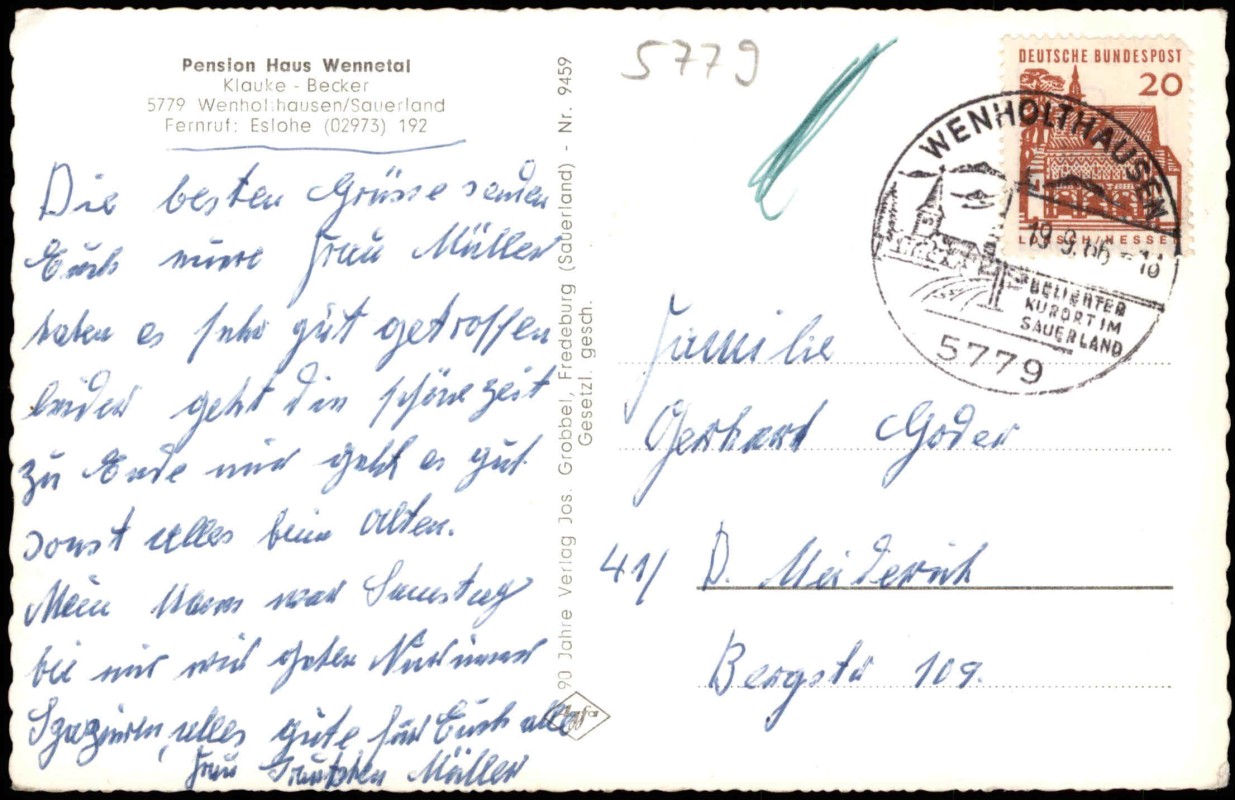 Pension Haus Wennetal
Klauke - Becker
5779 Wenholthausen/Sauerland
Fernruf: Eslohe (02973) 192
Die besten Grüsse senden
Euch Frau Müller
haben es sehr gut getroffen
leider geht die schöne Zeit
zu Ende mir geht es gut
sonst alles beim Alten.
Mein Mann war Samstag
bei mir wir gehen immer
alles gute für Euch alle
Frau Müller
90 Jahre Verlag Jos. Grobbel, Fredeburg (Sauerland) - Nr. 9459
Gesetzl. gesch.
5779
DEUTSCHE BUNDESPOST
20
LORSCH/HESSEN
WENHOLTHAUSEN
19.9.66 - 18
BELIEBTER
KURORT IM
SAUERLAND
5779
Familie
Gerhard Goder
41/ D. Meiderich
Bergstr 109.